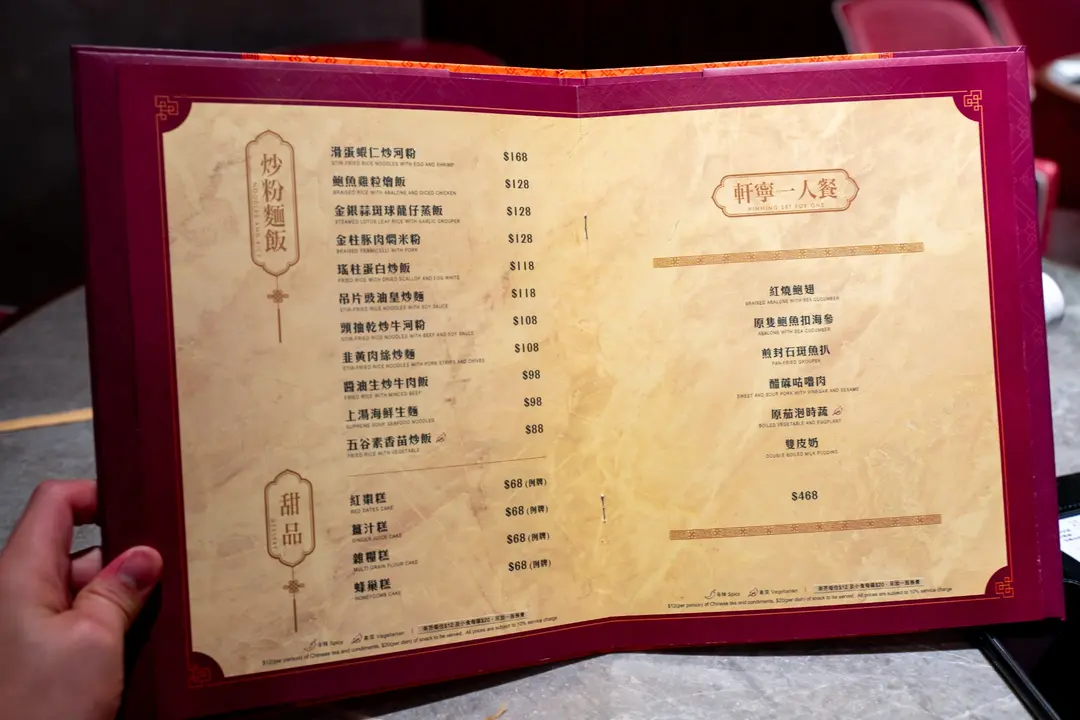 炒粉麵飯
NOODLES AND RICE
滑蛋蝦仁炒河粉 $168
STIR-FRIED RICE NOODLES WITH EGG AND SHRIMP
鮑魚雞粒燴飯 $128
BRAISED RICE WITH ABALONE AND DICED CHICKEN
金銀蒜斑球龍仔蒸飯 $128
STEAMED LOTUS LEAF RICE WITH GARLIC GROUPER
金柱豚肉燜米粉 $128
BRAISED VERMICELLI WITH PORK
瑤柱蛋白炒飯 $118
FRIED RICE WITH DRIED SCALLOP AND EGG WHITE
吊片豉油皇炒麵 $118
STIR-FRIED RICE NOODLES WITH SOY SAUCE
頭抽乾炒牛河粉 $108
STIR-FRIED RICE NOODLES WITH BEEF AND SOY SAUCE
韭黃肉絲炒麵 $108
STIR-FRIED RICE NOODLES WITH PORK STRIPS AND CHIVES
醬油生炒牛肉飯 $98
FRIED RICE WITH MINCED BEEF
上湯海鮮生麵 $98
SUPREME SOUP SEAFOOD NOODLES
五谷素香苗炒飯 $88
FRIED RICE WITH VEGETABLE
甜品
紅棗糕 $68 (例牌)
RED DATES CAKE
薑汁糕 $68 (例牌)
GINGER JUICE CAKE
雜糧糕 $68 (例牌)
MULTI GRAIN FLOUR CAKE
蜂巢糕 $68 (例牌)
HONEYCOMB CAKE
辛辣 Spicy 素菜 Vegetarian
$12/per person of Chinese tea and condiments, $20/per diary of snack to be served. All prices are subject to 10% service charge
軒寧一人餐
HINNING SET FOR ONE
紅燒鮑翅
BRAISED ABALONE WITH SEA CUCUMBER
原隻鮑魚扣海參
ABALONE WITH SEA CUCUMBER
煎封石斑魚扒
PAN-FRIED GROUPER
醋蔴咕嚕肉
SWEET AND SOUR PORK WITH VINEGAR AND SESAME
原茄泡時蔬
BOILED VEGETABLE AND EGGPLANT
雙皮奶
DOUBLE BOILED MILK PUDDING
$468
辛辣 Spicy 素菜 Vegetarian
$12/per person of Chinese tea and condiments, $20/per diary of snack to be served. All prices are subject to 10% service charge